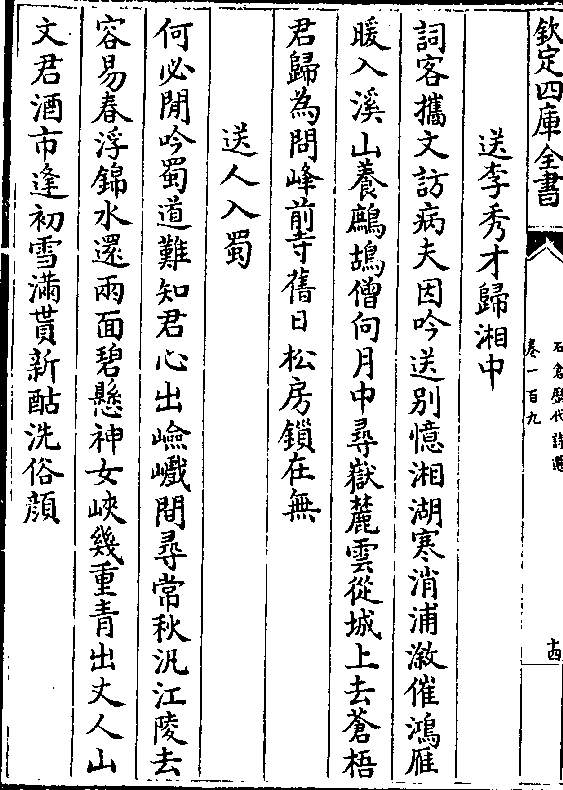 欽定四庫全書
石倉歷代詩選
卷一百九
十四
送李秀才歸湘中
詞客攜文訪病夫因吟送别憶湘湖寒消浦溆催鴻雁
暖入溪山養鷓鴣僧向月中尋嶽麓雲從城上去蒼梧
君歸為問峰前寺舊日松房鎖在無
送人入蜀
何必閒吟蜀道難知君心出嶮巇間尋常秋汎江陵去
容易春浮錦水還兩面碧懸神女峽幾重青出丈人山
文君酒市逢初雪滿貰新酤洗俗顔